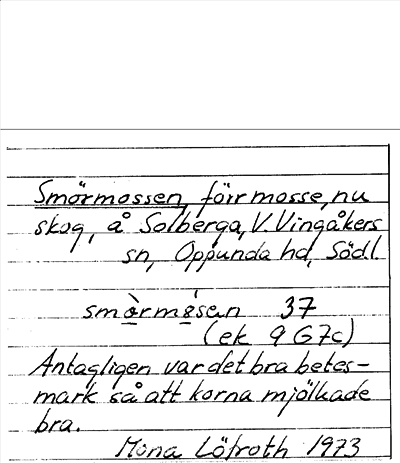 Smörmossen, förr mosse, nu
skog, å Solberga, V. Vingåkers
sn, Oppunda hd, Södl.
37
(ek 9 G7c)
Antagligen var det bra betes-
mark så att korna mjölkade
bra.
Mona Löfroth 1973